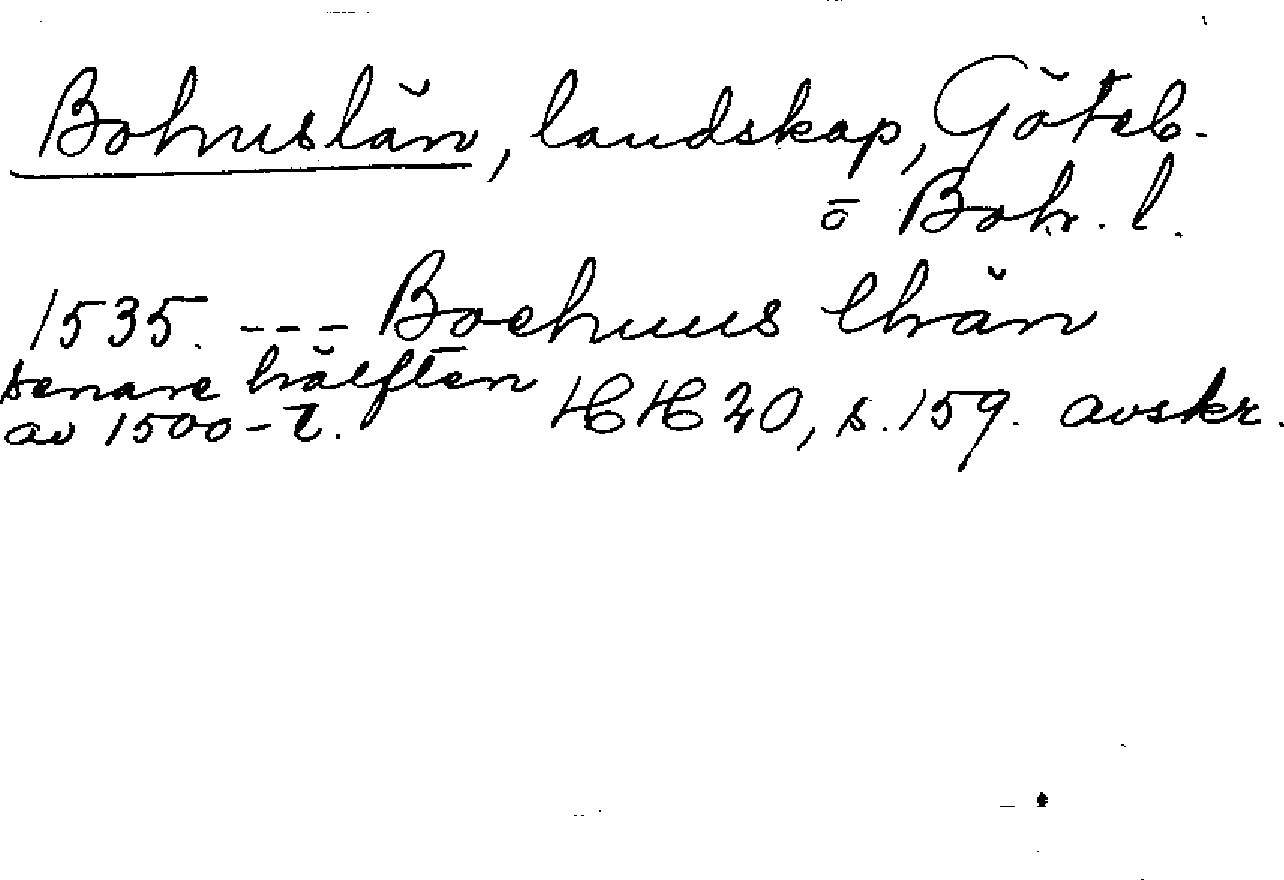 Bohuslän, landskap, Göteb.
o Boh. l.
1535. --- Boehuus lhän
senare hälften
av 1500-t. HH 20, s. 159. avskr.